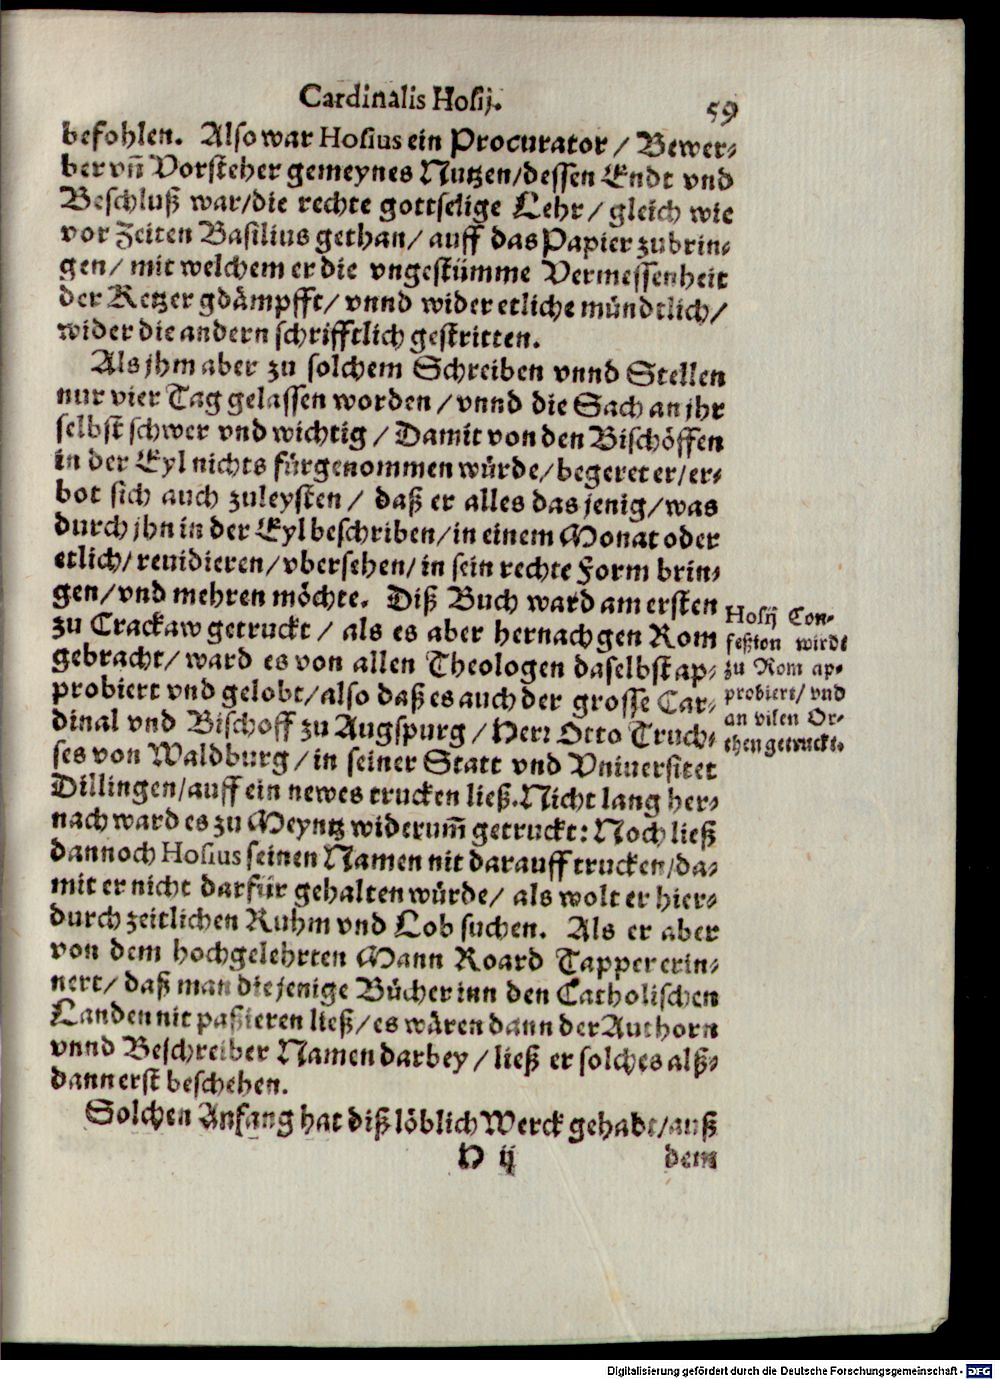 Cardinalis Hosij.
59
befohlen. Also war Hosius ein Procurator / Bewer⸗
ber vñ Vorsteher gemeynes Nutzen/dessen Endt vnd
Beschluß war/die rechte gottselige Lehr / gleich wie
vor Zeiten Basilius gethan/ auff das Papier zubrin⸗
gen/ mit welchem er die vngestümme Vermessenheit
der Ketzer gdämpfft/ vnnd wider etliche mündtlich/
wider die andern schrifftlich gestritten.
Als jhm aber zu solchem Schreiben vnnd Stellen
nur vier Tag gelassen worden / vnnd die Sach an jhr
selbst schwer vnd wichtig / Damit von den Bischöffen
in der Eyl nichts fürgenommen würde/begeret er/er⸗
bot sich auch zuleysten / daß er alles das jenig/was
durch jhn in der Eyl beschriben/in einem Monat oder
etlich/reuidieren/vbersehen/in sein rechte Form brin⸗
gen/vnd mehren möchte. Diß Buch ward am ersten
zu Crackaw getruckt / als es aber hernach gen Rom
gebracht/ ward es von allen Theologen daselbst ap⸗
probiert vnd gelobt/also daß es auch der grosse Car⸗
dinal vnd Bischoff zu Augspurg / Herr Otto Truch⸗
ses von Waldburg / in seiner Statt vnd Vniuersitet
Dillingen/auff ein newes trucken ließ. Nicht lang her⸗
nach ward es zu Meyntz widerum̃ getruckt: Noch ließ
dannoch Hosius seinen Namen nit darauff trucken/da⸗
mit er nicht darfür gehalten würde/ als wolt er hier⸗
durch zeitlichen Ruhm vnd Lob suchen. Als er aber
von dem hochgelehrten Mann Roard Tapper erin⸗
nert/ daß man die jenige Bücher inn den Catholischen
Landen nit passieren ließ/es wären dann der Authorn
vnnd Beschreiber Namen darbey / ließ er solches alß⸗
dann erst beschehen.
Solchen Anfang hat diß löblich Werck gehabt/auß
H ij
dem
Hosij Con⸗
feßion wirdt
zu Rom ap⸗
probiert/ vnd
an vilen Or⸗
then getruckt.
Digitalisierung gefördert durch die Deutsche Forschungsgemeinschaft - DFG